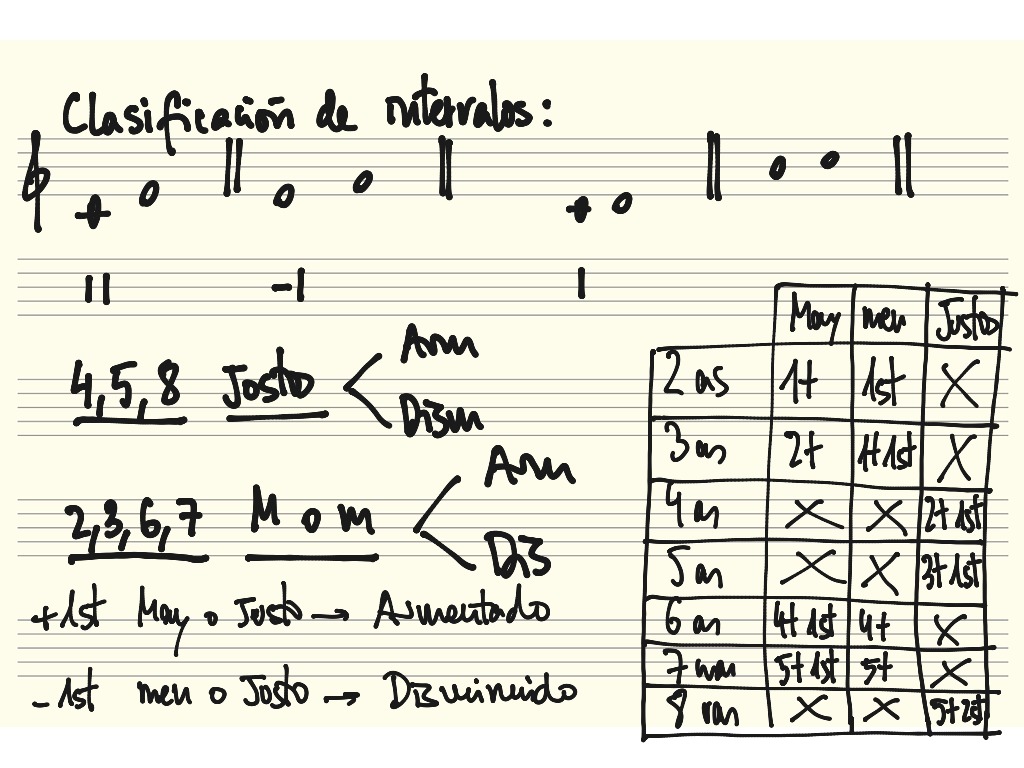 Clasificación de intervalos:
4,5,8 Justo Aum
Dism
2,3,6,7 M o m Aum
Dis
+1st May o Justo → Aumentado
-1st men o Justo → Disminuido
May men Justo
2 as 1t 1st X
3 as 2t 1t 1st X
4 as X X 2t 1st
5 as X X 3t 1st
6 as 4t 1st 4t X
7 mas 5t 1st 5t X
8 vas X X 5t 2st